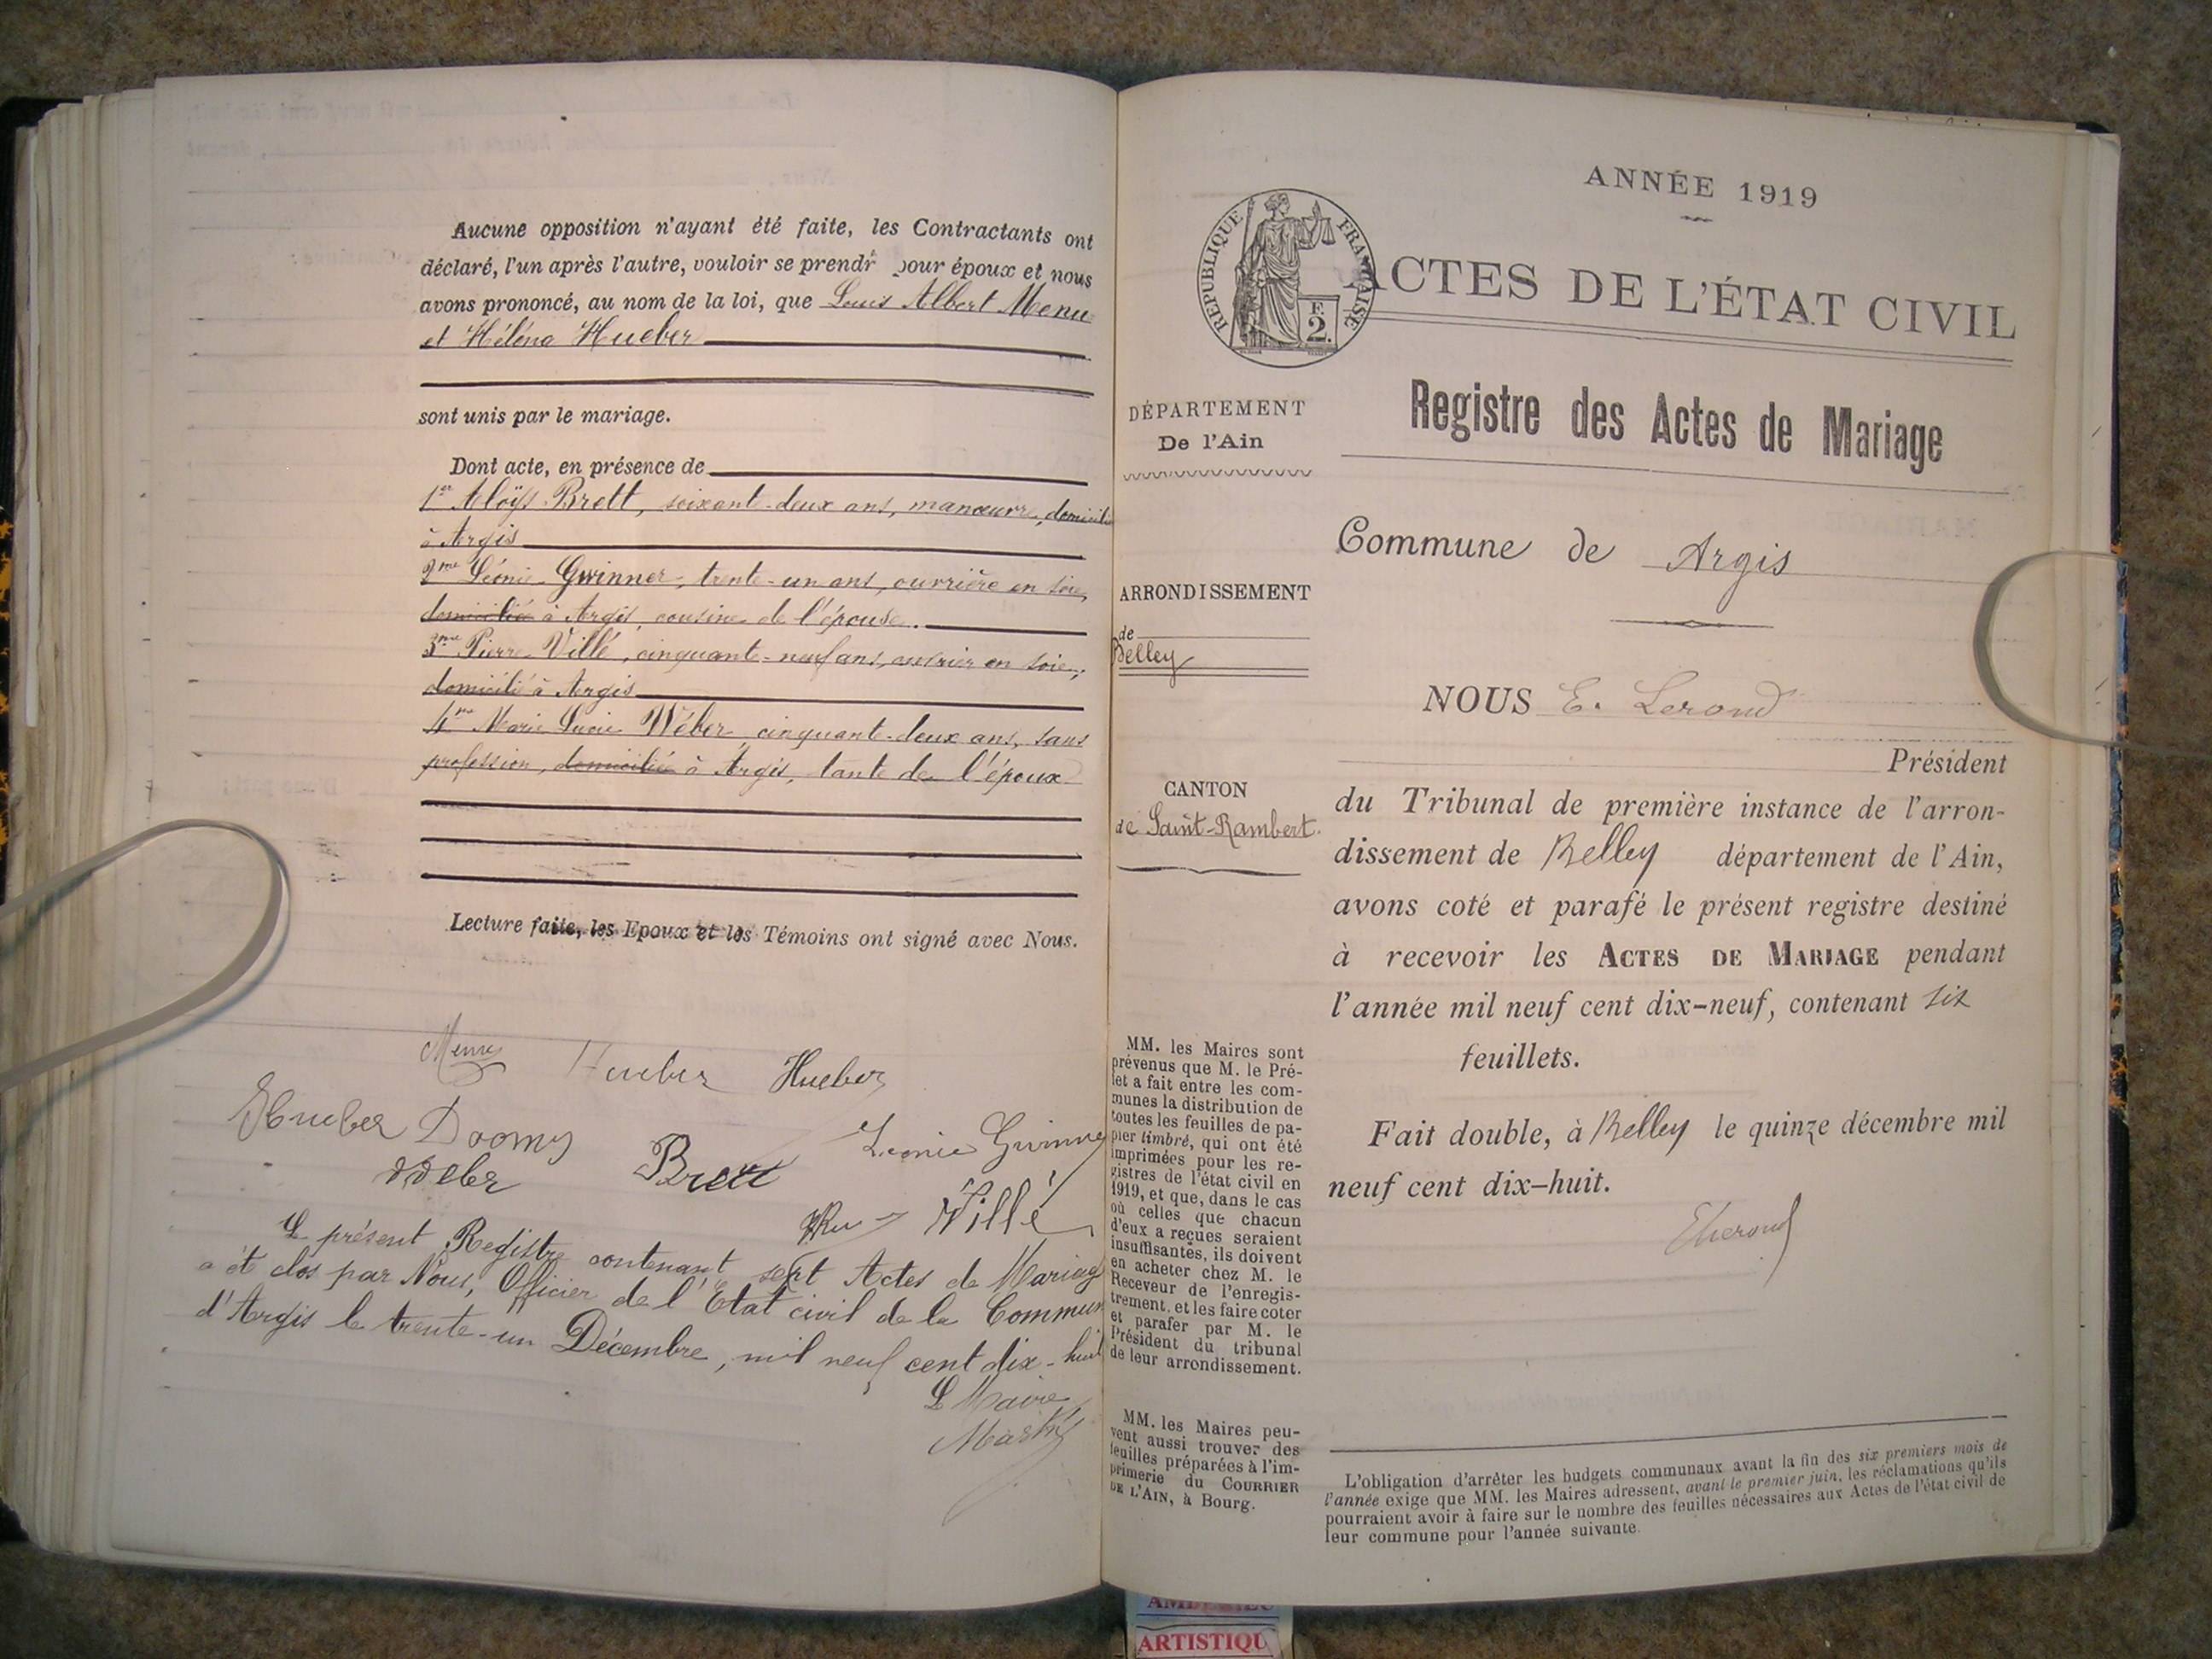 Aucune opposition n'ayant été faite, les Contractants ont
déclaré, l'un après l'autre, vouloir se prendr pour époux et nous
avons prononcé, au nom de la loi, que Louis Albert Menu
et Héléna Hueber
sont unis par le mariage.
Dont acte, en présence de
1er Aloÿs Brett, soixante-deux ans, manœuvre, domicilié
à Argis
2me Léonie Gwinner, trente-un ans, ouvrière en soie,
domiciliée à Argis, cousine de l'épouse.
3me Pierre Villé, cinquante-neuf ans, ouvrier en soie,
domicilié à Argis
4me Marie Lucie Wéber, cinquante-deux ans, sans
profession, domiciliée à Argis, tante de l'époux
Lecture faite, les Epoux et les Témoins ont signé avec Nous.
Menu Hueber Hueber
Hueber Doomy Léonie Gwinner
Weber Brett
Villé
Le présent Registre contenant sept Actes de Mariage
a été clos par Nous, Officier de l'Etat civil de la Commun
d'Argis le trente-un Décembre, mil neuf cent dix-huit
Le Maire
ANNÉE 1919
RÉPUBLIQUE FRANÇAISE
F.
2.
ACTES DE L'ÉTAT CIVIL
Registre des Actes de Mariage
DÉPARTEMENT
De l'Ain
ARRONDISSEMENT
de
Belley
CANTON
de Saint-Rambert.
MM. les Maires sont
prévenus que M. le Pré-
fet a fait entre les com-
munes la distribution de
toutes les feuilles de pa-
pier timbré, qui ont été
imprimées pour les re-
gistres de l'état civil en
1919, et que, dans le cas
où celles que chacun
d'eux a reçues seraient
insuffisantes, ils doivent
en acheter chez M. le
Receveur de l'enregis-
trement, et les faire coter
et parafer par M. le
Président du tribunal
de leur arrondissement.
MM. les Maires peu-
vent aussi trouver des
feuilles préparées à l'im-
primerie du COURRIER
DE L'AIN, à Bourg.
Commune de Argis
NOUS E. Lerond
Président
du Tribunal de première instance de l'arron-
dissement de Belley département de l'Ain,
avons coté et parafé le présent registre destiné
à recevoir les ACTES DE MARIAGE pendant
l'année mil neuf cent dix-neuf, contenant six
feuillets.
Fait double, à Belley le quinze décembre mil
neuf cent dix-huit.
ELerond
L'obligation d'arrêter les budgets communaux avant la fin des six premiers mois de
l'année exige que MM. les Maires adressent, avant le premier juin, les réclamations qu'ils
pourraient avoir à faire sur le nombre des feuilles nécessaires aux Actes de l'état civil de
leur commune pour l'année suivante.
ARTISTIQU